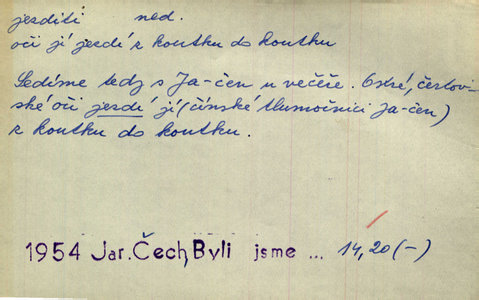 jezditi ned.
oči jí jezdí z koutku do koutku
Sedíme tedy s Ja-čen u večeře. Ostré, čertov-
ské oči jezdí jí (čínské tlumočnici Ja-čen)
z koutku do koutku.
1954 Jar. Čech, Byli jsme ... 14,20 (-)